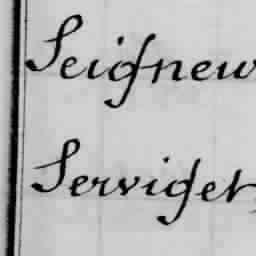 Seigneu
Serviget